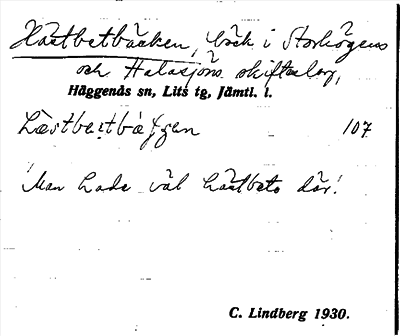 Hästbetbäcken, bäck i Storhögens
och Halasjöns skifteslag,
Häggenås sn, Lits tg, Jämtl. l.
107
Man hade väl hästbete där.
C. Lindberg 1930.